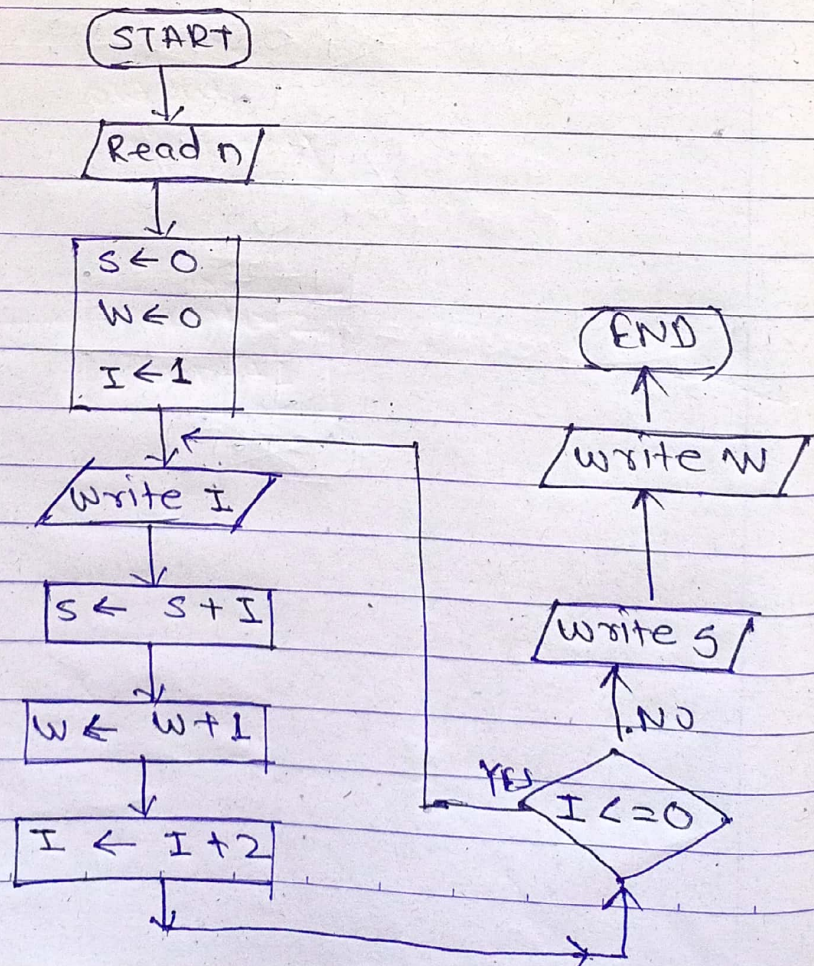 START
Read n
S ← 0
W ← 0
I ← 1
Write I
S ← S + I
W ← W + 1
I ← I + 2
I <= 0
YES
NO
Write S
Write W
END